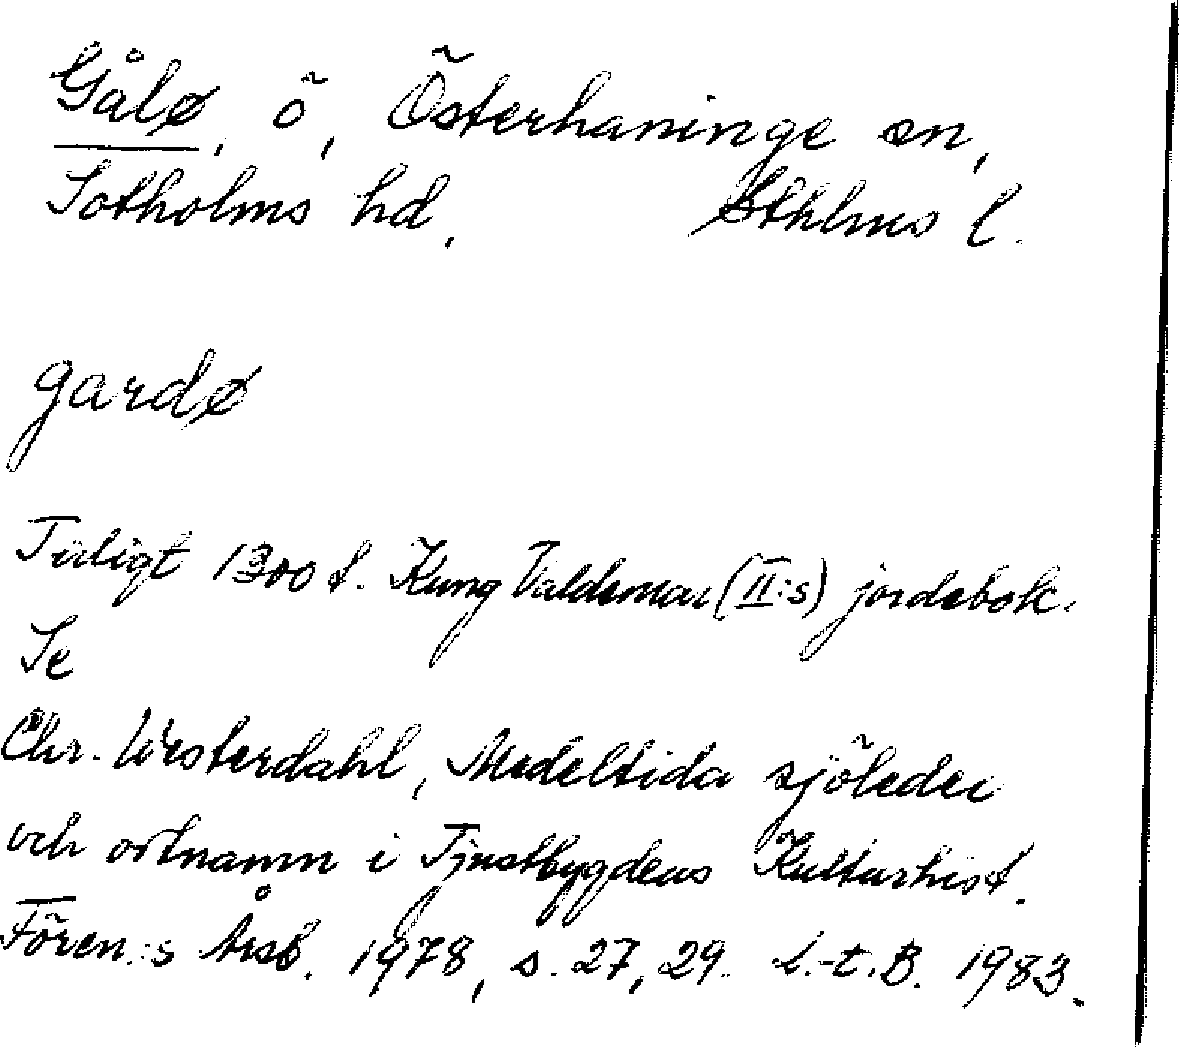 Gålø, ö, Österhaninge sn,
Sotholms hd, Sthlms l.
gardø
Tidigt 1300 t. Kung Valdemar (II:s) jordebok.
Se
Chr. Westerdahl, Medeltida sjöleder
och ortnamn i Tjustbygdens Kulturhist.
Fören.:s Årsb. 1978, s. 27, 29. L.-t.B. 1983.